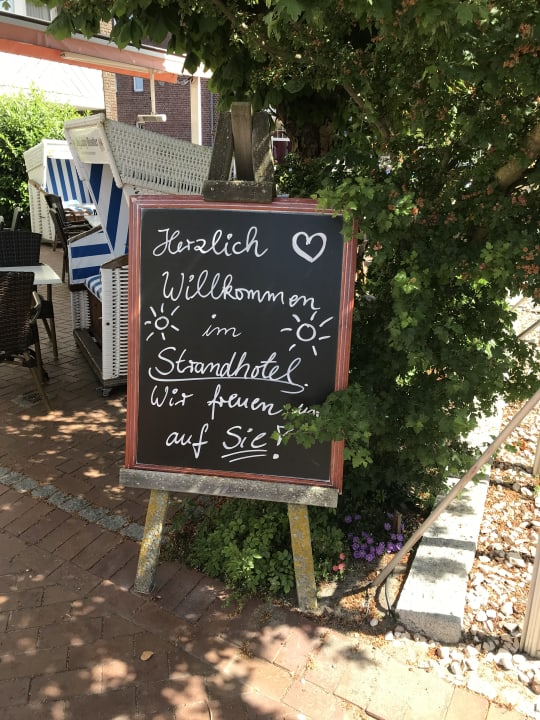 Herzlich
Willkommen
im
Strandhotel.
Wir freuen un
auf Sie!